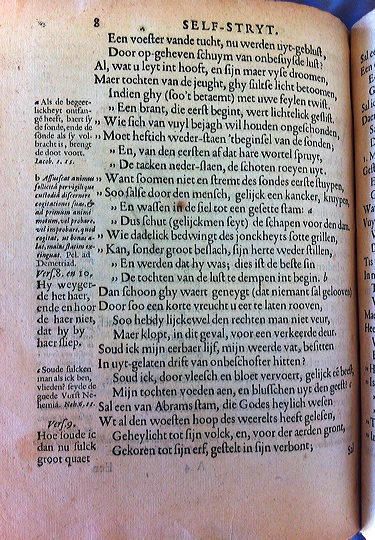 8 SELF-STRYT.
Een voester vande tucht, nu werden uyt-geblust,
Door op-geheven schuym van onbesuysde lust?
Al, wat u leyt int hooft, en sijn maer vyse droomen,
Maer tochten van de jeught, ghy sulse licht betoomen,
Indien ghy (soo't betaemt) met uwe feylen twist.
„ Een brant, die eerst begint, wert lichtelick geslist.
„ Wie sich van vuyl bejagh wil houden ongeschonden,
„ Moet heftich weder-staen 'tbeginsel van de sonden,
„ En, van den eersten af dat hare wortel spruyt,
„ De tacken neder-slaen, de schoten roeyen uyt.
„ Want soomen niet en stremt des sondes eerste stuypen,
„ Soo salse door den mensch, gelijck een kancker, kruypen,
„ En wassen in de siel tot een gesette stam: a
„ Dus schut (gelijckmen seyt) de schapen voor den dam.
„ Wie dadelick bedwingt des jonckheyts sotte grillen,
„ Kan, sonder groot beslach, sijn herte weder stillen,
„ En werden dat hy was; dies ist de beste sin
„ De tochten van de lust te dempen int begin. b
Dan schoon ghy waert geneygt (dat niemant sal gelooven)
Door soo een korte vreucht u eer te laten rooven,
Soo hebdy lijckewel den rechten man niet veur,
Maer klopt, in dit geval, voor een verkeerde deur.
Soud ick mijn eerbaer lijf, mijn weerde vat, besitten
In uyt-gelaten drift van onbeschofter hitten?
Soud ick, door vleesch en bloet vervoert, gelijck
Mijn tochten voeden aen, en blusschen uyt den geest? c
Sal een van Abrams stam, die Godes heylich wesen
Wt al den woesten hoop des weerelts heeft gelesen,
Geheylicht tot sijn volck, en, voor der aerden gront,
Gekoren tot sijn erf, gestelt in sijn verbont;
Sal
a Als de begeer-
lickheyt ontfan-
gé heeft, baert sy
de sonde, ende de
sonde als sy vol-
bracht is, brengt
de doot voort.
Iacob. 1. 15.
b Assuescat animus
sollicitâ pervigilique
custodiâ discernere
cogitationes suas, &
ad primum animi
motum, vel probare,
vel improbare, quod
cogitat, ut bonas a-
lat, malas statim ex-
tinguat. Pel. ad
Demetriad.
Vers. 8. en 10,
Hy weyger-
de het haer,
ende en hoor
de haer niet,
dat hy by
haer sliep.
c Soude sulcken
man als ick ben,
vlieden? seyde de
goede Vorst Ne-
hemia. Neh. 6, 11.
Vers. 9.
Hoe soude ic
dan nu sulck
groot quaet